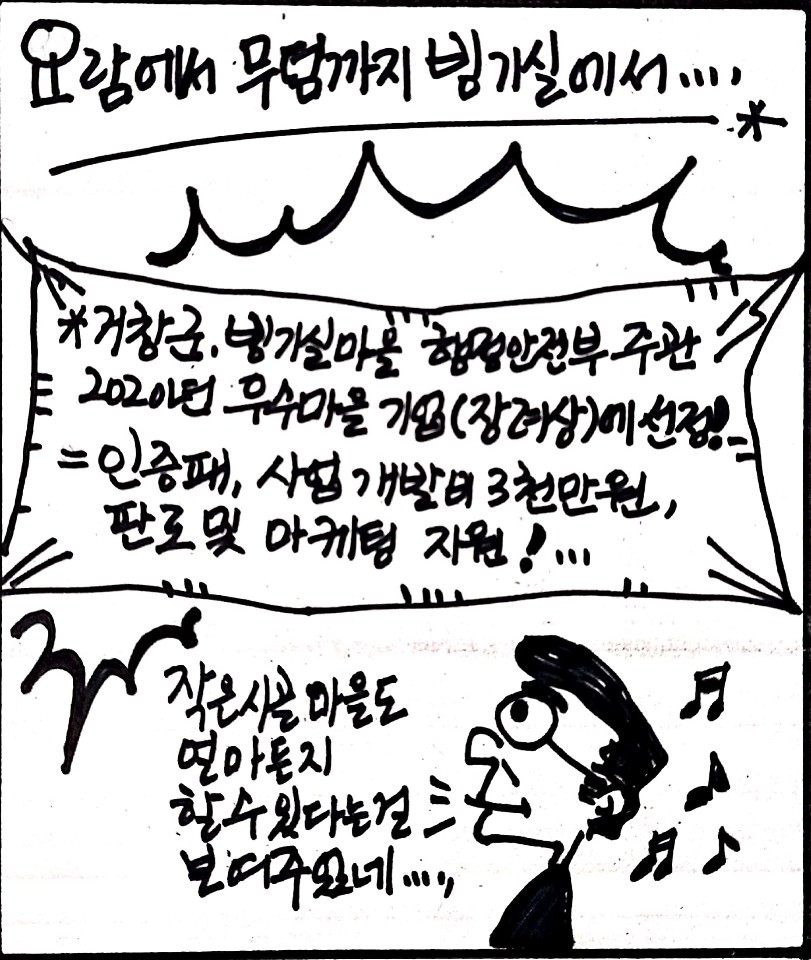 요람에서 무덤까지 빙기실에서....
*거창군, 빙기실마을 행정안전부 주관
2020년 우수마을 기업(장려상)에 선정!
인증패, 사업개발비 3천만원,
판로 및 마케팅 지원!...
작은시골 마을도
얼마든지
할 수 있다는걸
보여주었네....,